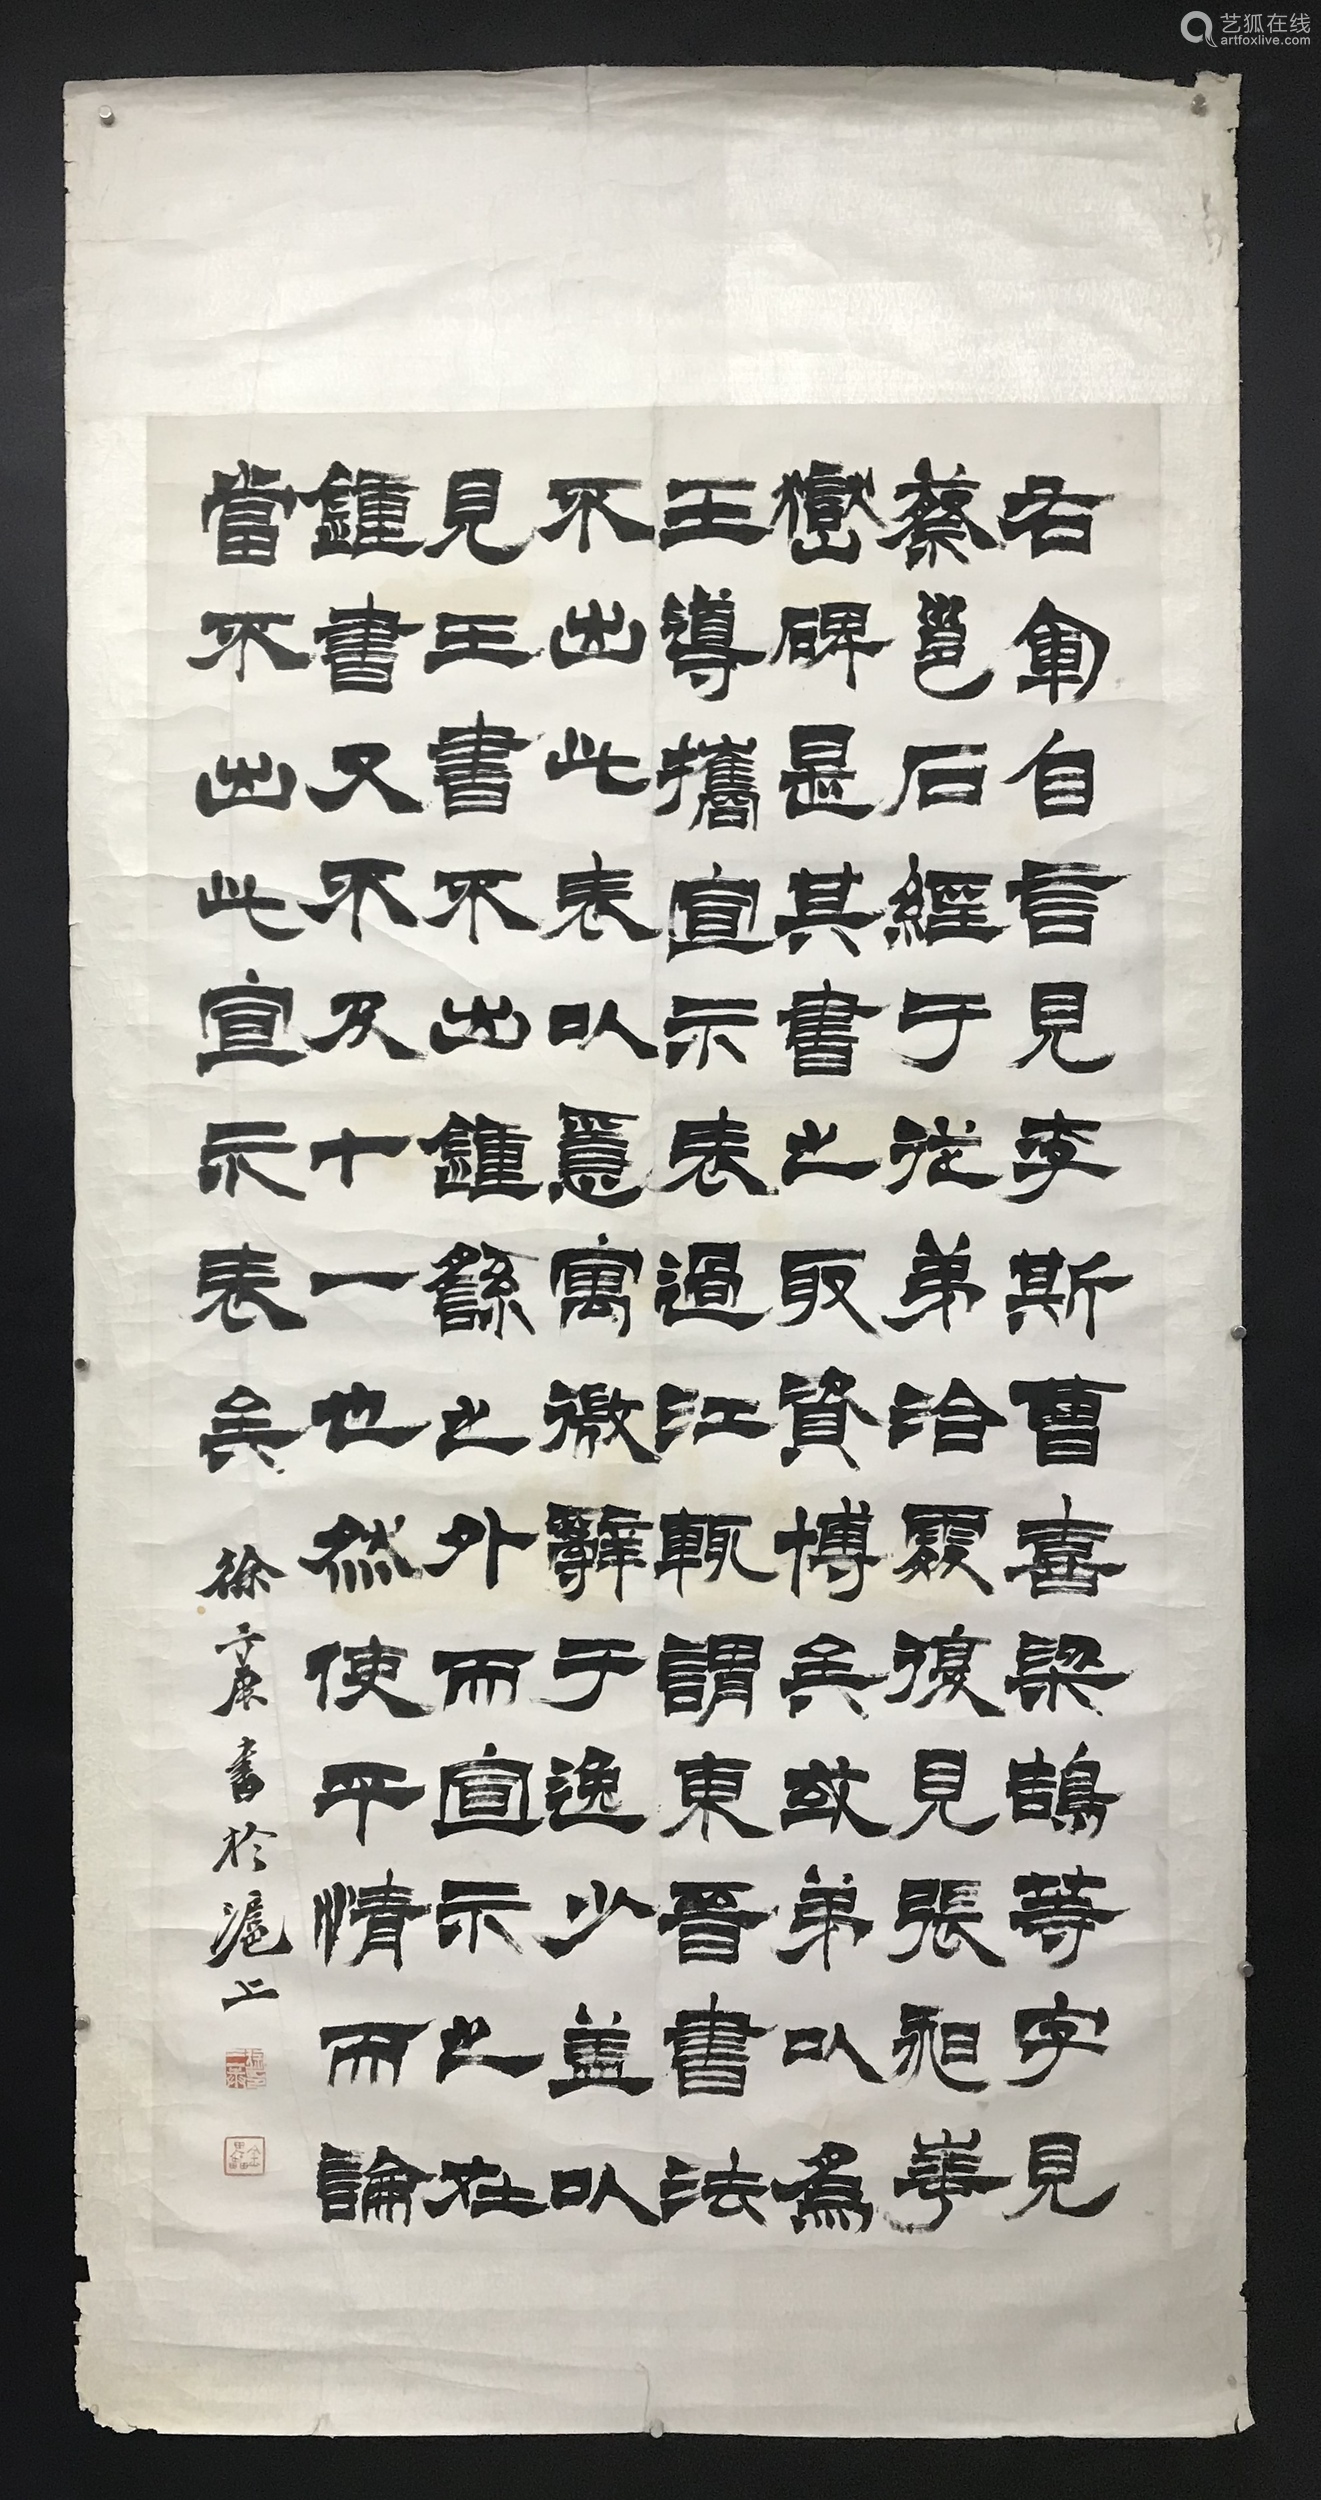 右軍自言見李斯曹喜梁鵠等字見
蔡邕石經于從弟洽處復見張昶華
嶽碑是其書之取資博矣或弟以為
王導攜宣示表過江輒謂東晉書法
不出此表以意寓徵辭于逸少蓋以
見王書不出鍾繇之外而宣示之在
鍾書又不及十一也然使平情而論
當不出此宣示表矣
徐三庚書於滬上
艺狐在线
artfoxlive.com